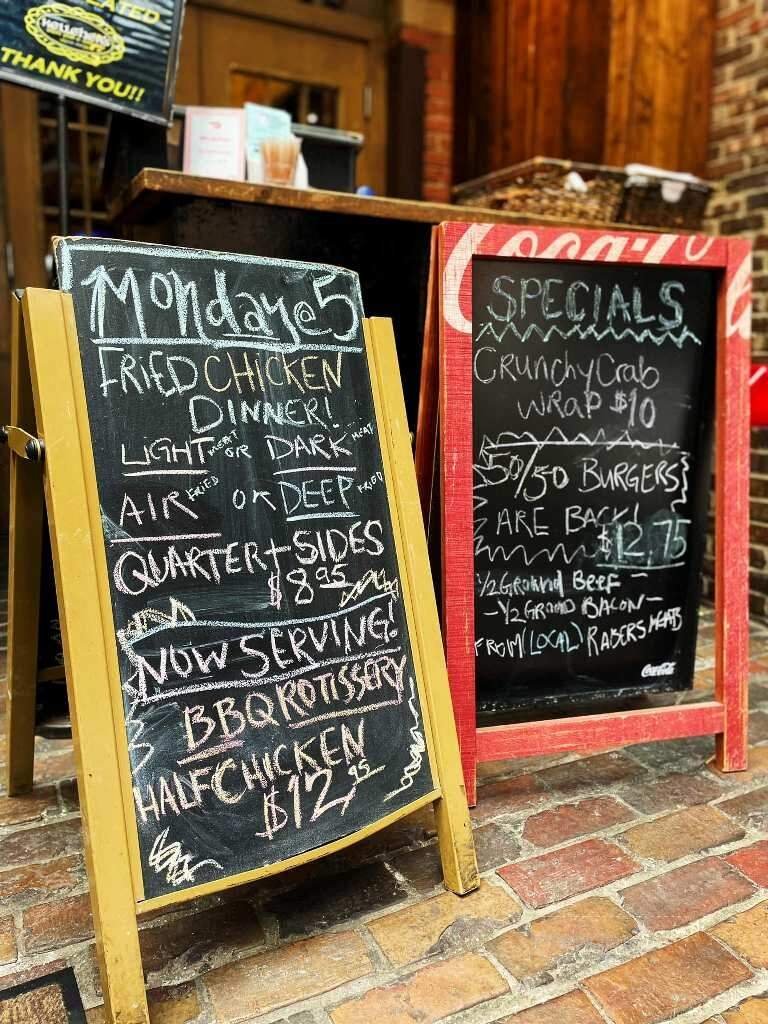 THANK YOU!!
Monday@5
FRIED CHICKEN
DINNER!
LIGHT MEAT OR DARK MEAT
AIR FRIED OR DEEP FRIED
QUARTER + SIDES
$8.95
NOW SERVING!
BBQ ROTISSERY
HALF CHICKEN
$12.95
Coca-Co
SPECIALS
Crunchy Crab
WRAP $10
50/50 BURGERS
ARE BACK!
$12.75
1/2 Ground BEEF -
- 1/2 GROUND BACON -
FROM (LOCAL) RABERS MEATS
Coca-Cola